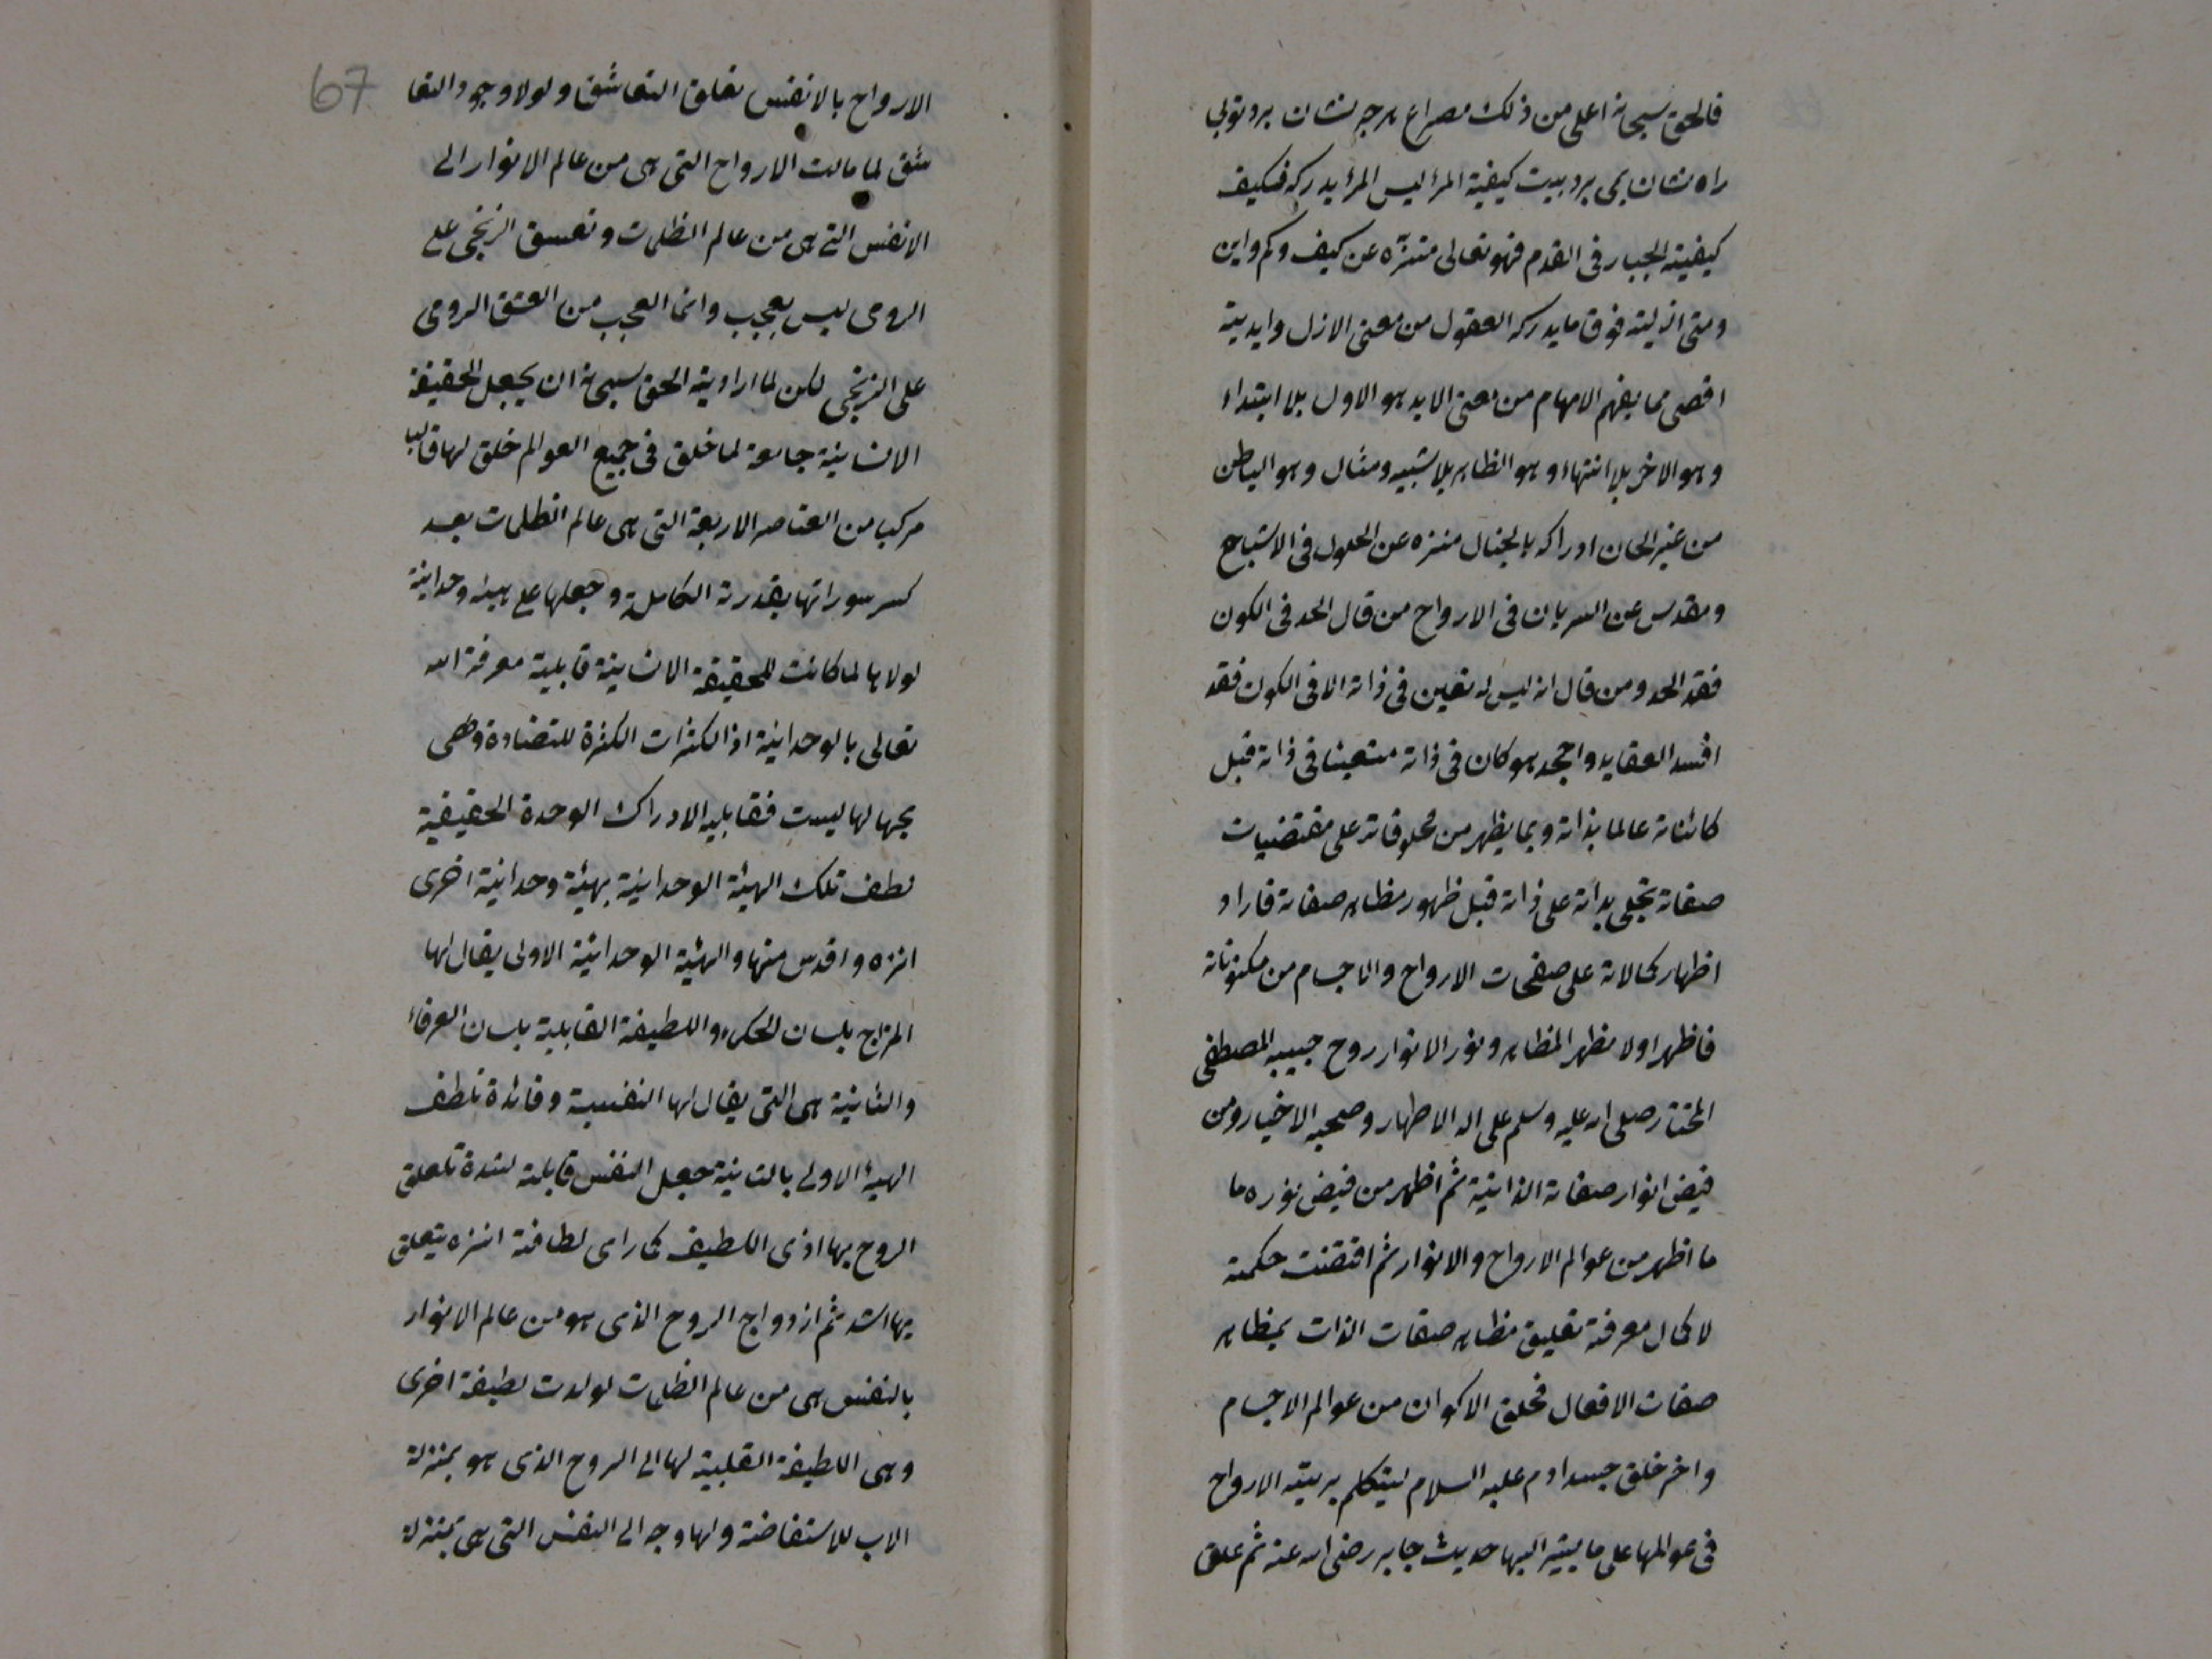 فالحق سبحانه اعلى من ذلك مصراع هرچه نشان برد توبى
راه نشان بمى برد بيت كيفية المرأ ليس المرأ يدركه فكيف
كيفية الجبار فى القدم فهو تعالى متنزه عن كيف وكم واين
ومتى ازليته فوق ما يدركه العقول من معنى الازل وابديته
اقصى مما يفهم الافهام من معنى الابد هو الاول بلا ابتداء
وهو الاخر بلا انتهاء وهو الظاهر بلا شبيه ومثال وهو الباطن
من غير امكان ادراكه بالخيال منزه عن الحلول فى الاشباح
ومقدس عن السريان فى الارواح من قال الحد فى الكون
فقد الحد ومن قال انه ليس له تعين فى ذاته الا فى الكون فقد
افسد العقايد واجحد هو كان فى ذاته متعينا فى ذاته قبل
كائناته عالما بذاته وبما يظهر من مخلوقاته على مقتضيات
صفاته تجلى بذاته على ذاته قبل ظهور مظاهر صفاته فاراد
اظهار كمالاته على صفحات الارواح والاجسام من مكنوناته
فاظهر اولا مظهر المظاهر ونور الانوار روح حبيبه المصطفى
المختار صلى الله عليه وسلم على اله الاطهار وصحبه الاخيار ومن
فيض انوار صفاته الذاتية ثم اظهر من فيض نوره ما
ما اظهر من عوالم الارواح والانوار ثم اقتضت حكمته
لاكمال معرفته تعليق مظاهر صفات الذات بمظاهر
صفات الافعال فخلق الاكوان من عوالم الاجسام
واخر خلق جسد ادم عليه السلام ليتكلم بريته الارواح
فى عوالمها على ما يشير اليها حديث جابر رضى الله عنه ثم علق
67
الارواح بالانفس تعلق التعاشق ولولا وجود التعا
شق لما مالت الارواح التى هى من عالم الانوار الى
الانفس التى هى من عالم الظلمات وتعسق الزنجى على
الرومى ليس بعجب وانما العجب من العشق الرومى
على الزنجى لكن لما ارادية الحق سبحانه ان يجعل الحقيقة
الانسانية جامعة لما خلق فى جميع العوالم خلق لها قالبا
مركب من العناصر الاربعة التى هى عالم الظلمات بعد
كسر سوراتها بقدرته الكاملة وجعلها على هيئة وحدانية
لولاها لما كانت للحقيقة الانسانية قابلية معرفة الله
تعالى بالوحدانية اذ الكثرات الكثرة للتضادة وهى
بجهالها ليست فقابلية الادراك الوحدة الحقيقية
لطف تلك الهيئة الوحدانية بهيئة وحدانية اخرى
انزه واقدس منها والهيئة الوحدانية الاولى يقال لها
المزاج بلسان الحكماء واللطيفة القابلية بلسان العرفاء
والثانية هى التى يقال لها النفسية وفائدة تلطف
الهيئة الاولى بالثانية جعل النفس قابلة لشدة تعلق
الروح بها اذى اللطيف كما راى لطافته انزه يتعلق
بها اشد ثم ازدواج الروح الذى هو من عالم الانوار
بالنفس هى من عالم الظلمات لولدت لطيفة اخرى
وهى اللطيفة القلبية لها الى الروح الذى هو بمنزلة
الاب للاستفاضة ولها وجه الى النفس التى هى بمنزلة